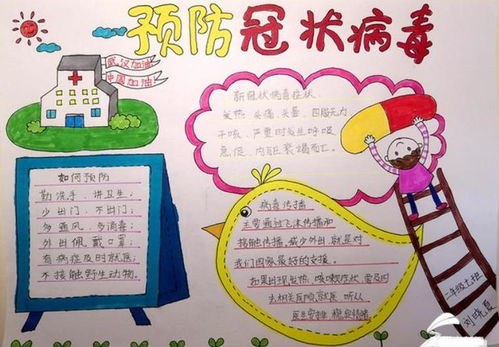 预防冠状病毒
武汉加油
中国加油
新冠状病毒症状
发热、头痛、头晕、四肢无力
干咳、严重时发生呼吸
急促、内脏衰竭而亡。
如何预防
勤洗手,讲卫生;
少出门,不出门;
多通风,多消毒;
外出佩戴口罩;
有病症及时就医;
不接触野生动物。
病毒传播
主要通过飞沫传播和
接触传播,减少外出就是对
我们国家最好的支援。
如果出现发热、咳嗽症状,要及时
去相关医院就医,听从
医生安排
二年级七班
刘晓夏